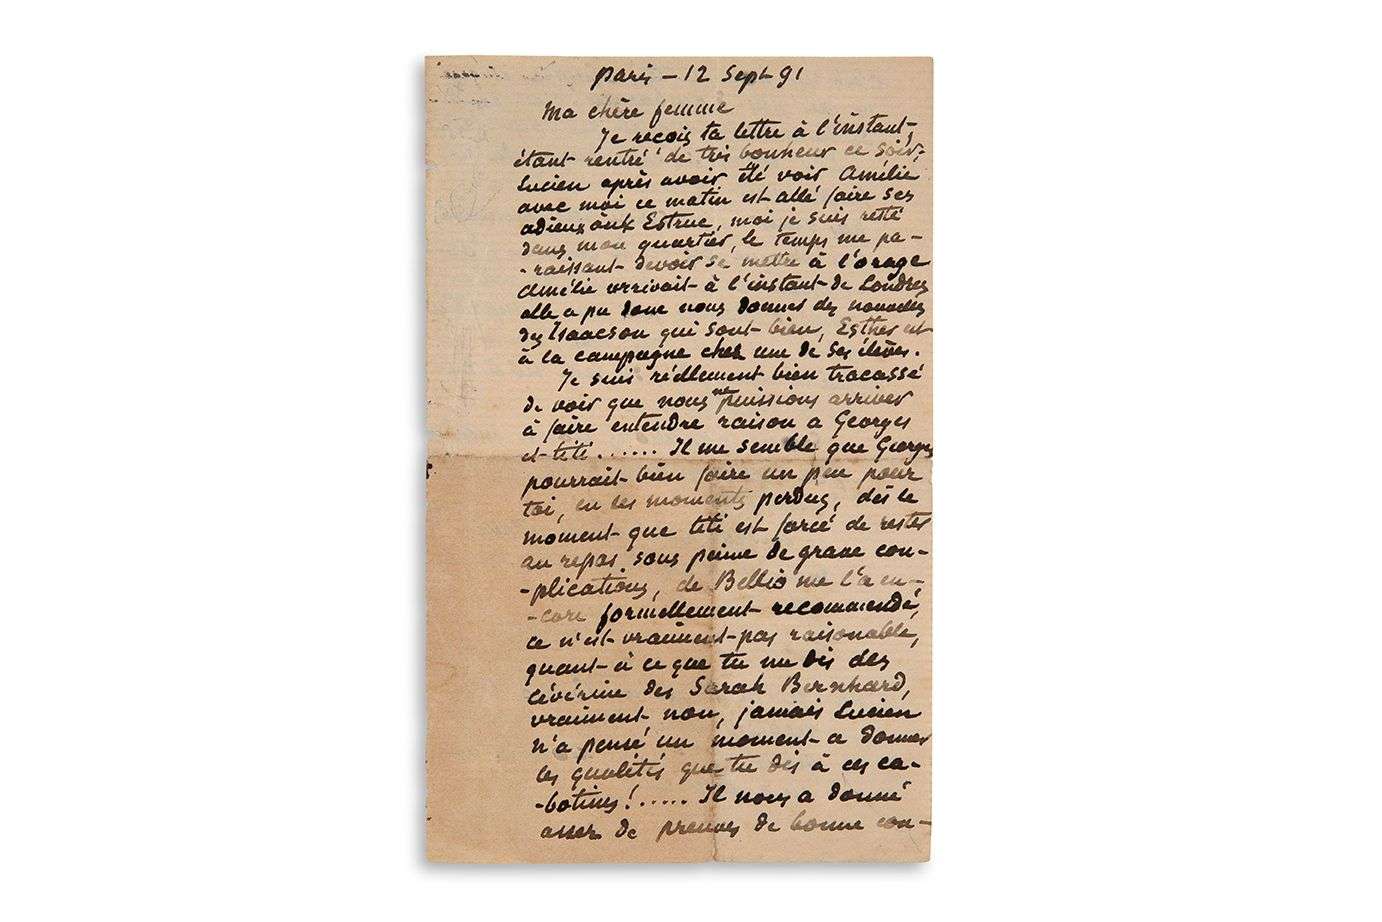 paris - 12 Sept 91
Ma chère femme
Je reçois ta lettre à l'instant,
étant rentré de très bonheur ce soir,
Lucien après avoir été voir Amélie
avec moi ce matin est allé faire ses
adieux aux Estruc, moi je suis resté
dans mon quartier, le temps me pa-
-raissant devoir se mettre à l'orage
Amélie arrivait à l'instant de Londres
elle a pu donc nous donner des nouvelles
des Isaacson qui sont bien, Esther est
à la campagne chez une de ses élèves.
Je suis réellement bien tracassé
de voir que nous ne puissions arriver
à faire entendre raison a Georges
et titi ...... Il me semble que Georges
pourrait bien faire un peu pour
toi, en ses moments perdus, dès le
moment que titi est forcé de rester
au repos sous peine de grave com-
-plications, de Bellio me l'a en-
-core formellement recommandé,
ce n'est vraiment pas raisonable,
quant à ce que tu me dis des
Cévérine des Sarah Bernhard,
vraiment non, jamais Lucien
n'a pensé un moment a donner
les qualités que tu dis à ces ca-
-botines! ..... Il nous a donné
assez de preuves de bonne con-